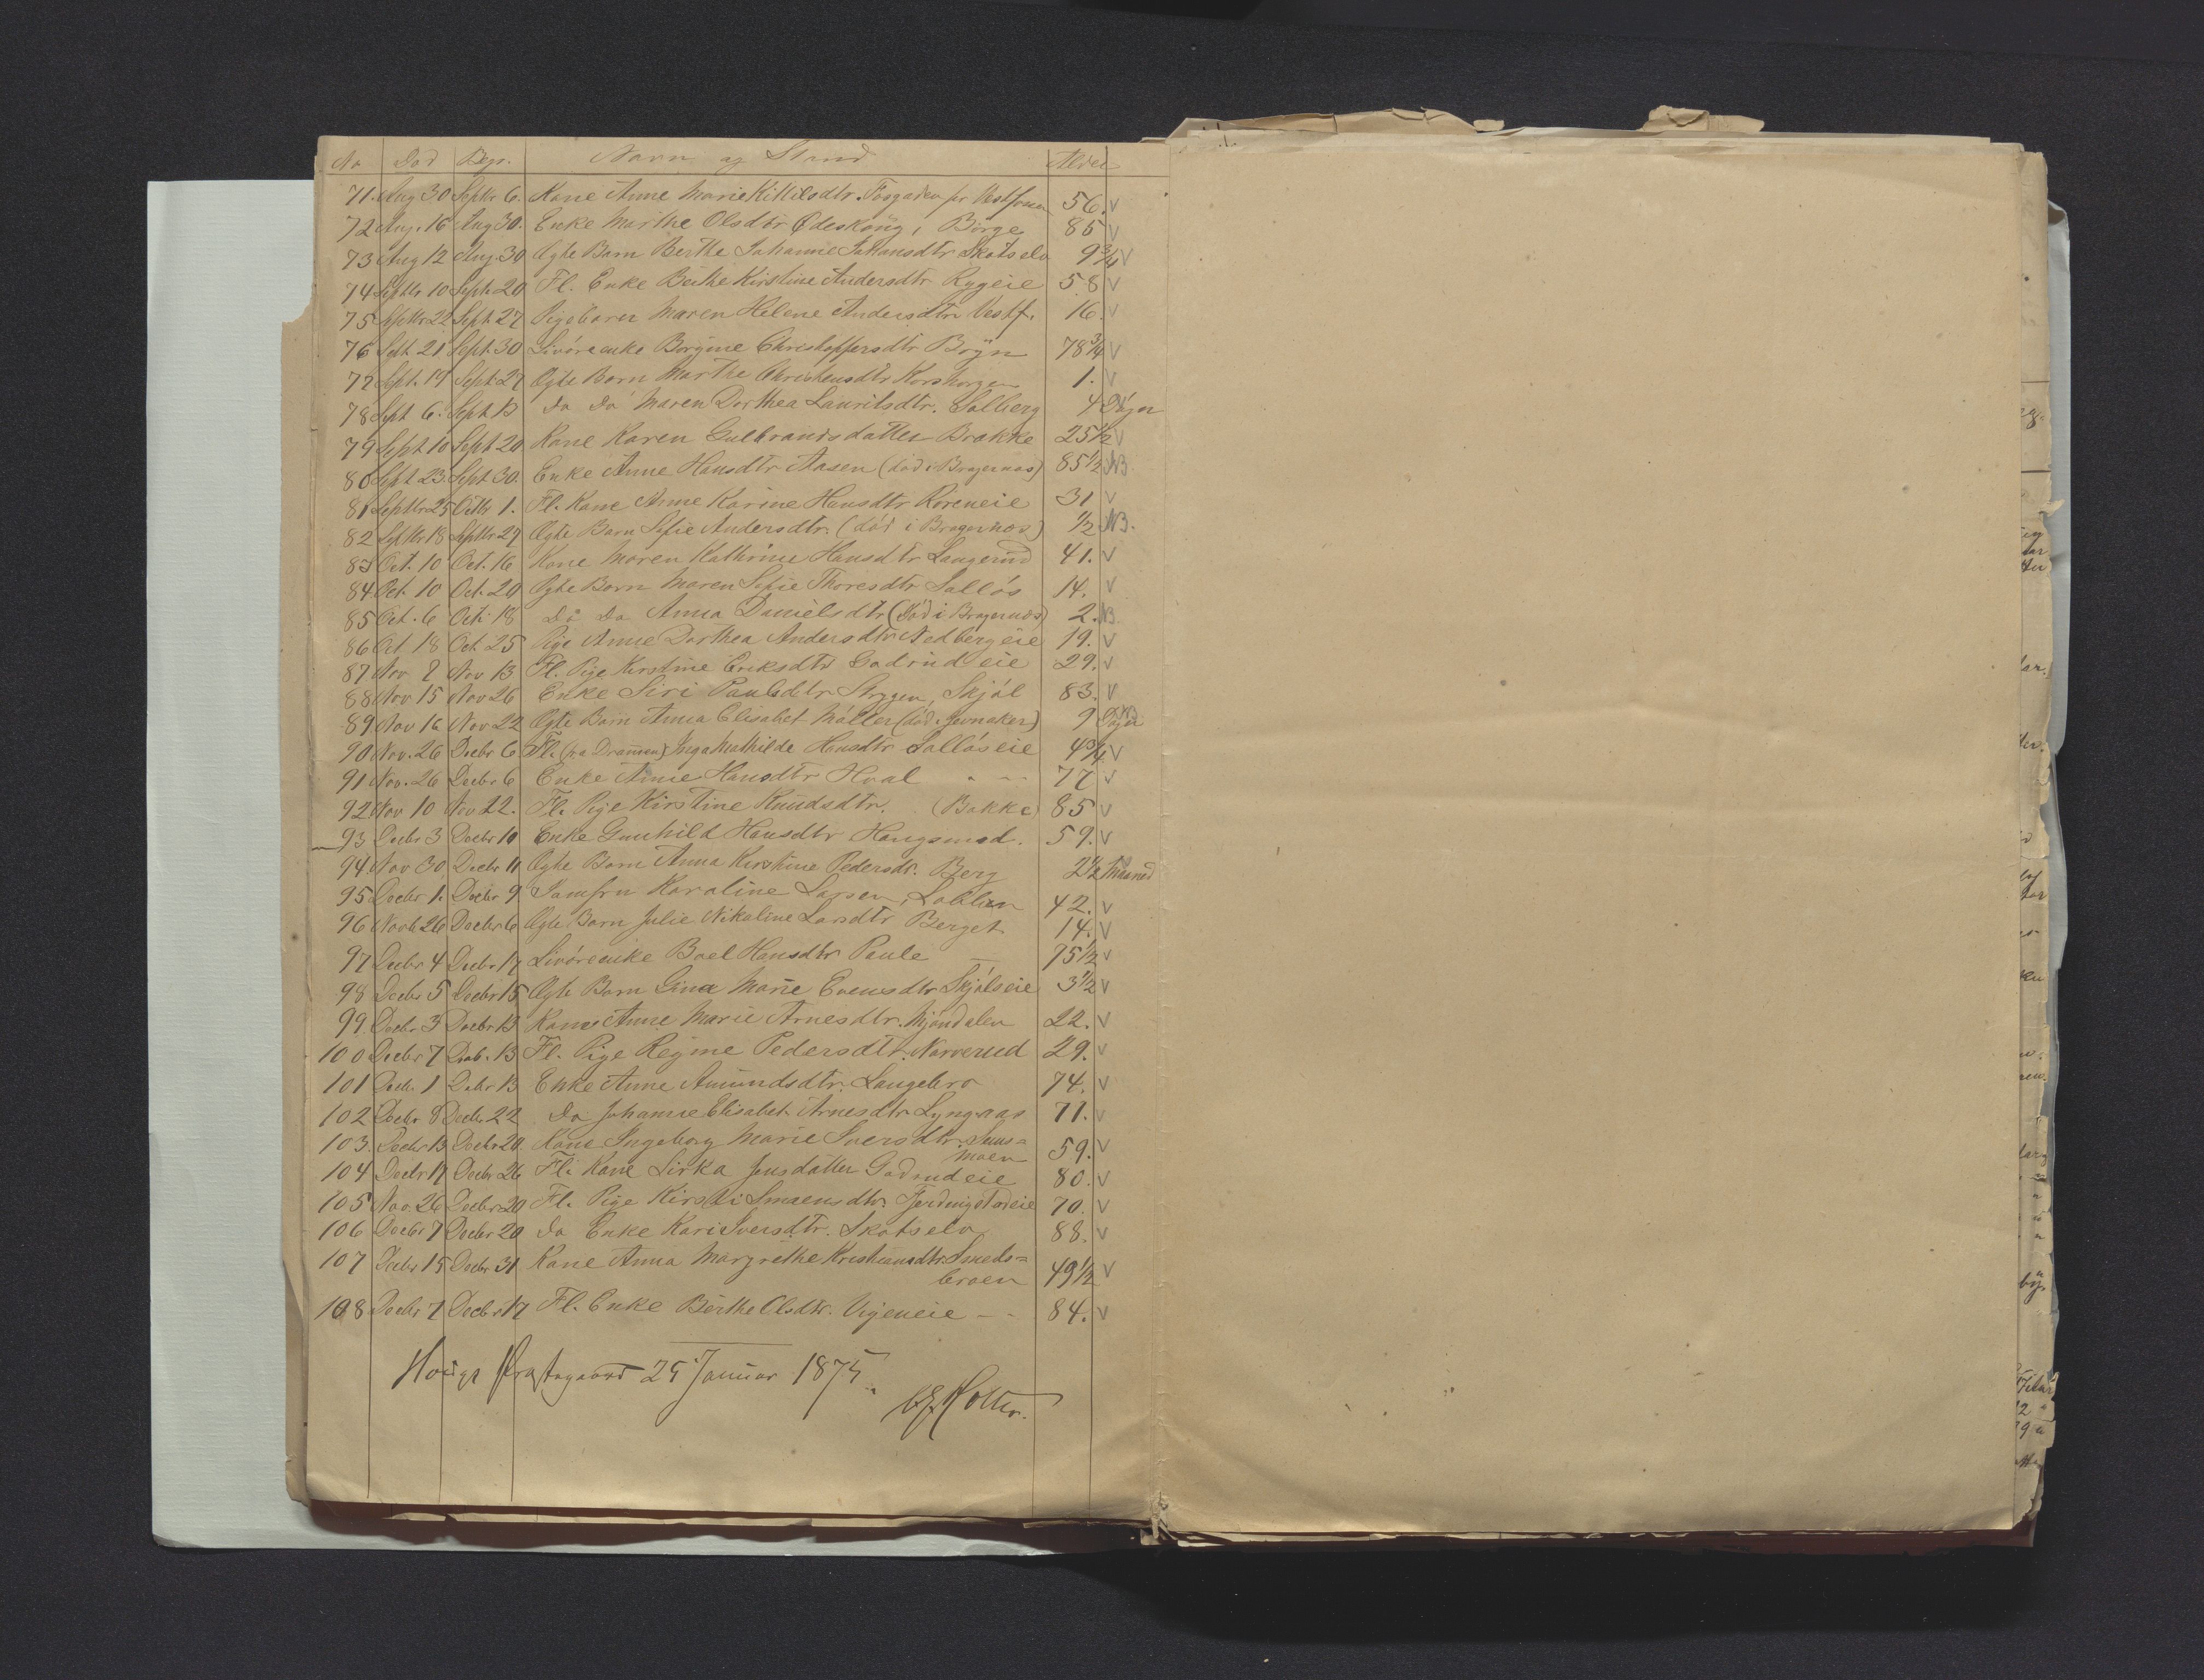 No Död Begr. Navn og Stand Alder
71. Aug 30 Septbr 6. Kone Anne Marie Kittilsdtr. Fosgaden pr Vestfossen 56. V
72 Aug. 16 Aug 30. Enke Marthe Olsdtr Ödeskoug, Börge 85 V
73 Aug 12 Aug. 30 Ægte Barn Berthe Johanne Johansdtr Skotselv 9 3/4 V
74 Septbr 10 Sept. 20 Fl. Enke Berthe Kirstine Andersdtr Rygeie 58 V
75 Septbr 22 Sept. 27 Pigebarn Maren Helene Andersdtr Vestf. 16. V
76 Sept. 21 Sept. 30 Livöreenke Börgine Christoffersdtr Böyn 78 3/4 V
77 Sept. 19 Sept. 27 Ægte Barn Marthe Christensdtr Korshorgen 1. V
78 Sept 6. Sept 13 Do Do Maren Dorthea Lauritsdtr. Solberg 4 Dage
79 Sept 10 Sept 20. Kone Karen Gulbrandsdatter Brekke 25 1/2 V
80 Sept 23. Sept 30. Enke Anne Hansdtr Aasen (död i Bragernæs) 85 1/2 NB
81 Septbr 25 Octbr 1. Fl. Kone Anne Karine Hansdtr Roreneie 31 V
82 Septbr 18 Septbr 27 Ægte Barn Sofie Andersdtr. (död i Bragernæs) 1/2 NB.
83 Oct. 10 Oct. 16 Kone Maren Kathrine Hansdtr Langerud 41. V
84 Oct. 10 Oct. 20 Ægte Barn Maren Sofie Thoresdtr Sollös 14. V
85 Oct. 6 Oct. 18 Do Do Anna Danielsdtr (död i Bragernæs) 2. NB
86 Oct. 18 Oct. 25 Pige Anne Dorthea Andersdtr Nedbergeie 19. V
87 Nov 7 Nov 13 Fl. Pige Kirstine Eriksdtr Godrudeie 29. V
88 Nov 15 Nov 26 Enke Siri Paulsdtr Strygen, Skjöl 83. V
89 Nov 16 Nov 22 Ægte Barn Anna Elisabet Möller (död i Jevnaker) 9 Dage NB
90 Nov. 26 Decbr 6 Fl. (fra Drammen) Inga Mathilde Hansdtr Sollöseie 4 3/4 V
91 Nov. 26 Decbr 6 Enke Anne Hansdtr Hval 77 V
92 Nov 10 Nov 22. Fl. Pige Kirstine Knudsdtr. (Bakke) 85 V
93 Decbr 3 Decbr 10 Enke Gunhild Hansdtr Hougsmod. 59. V
94. Nov 30 Decbr 11 Ægte Barn Anna Kirstine Pedersdtr. Berg 2 1/2 Maaned
95 Decbr 1. Decbr 9 Jomfru Karoline Larsen, Loblien 42. V
96 Novb 26 Decbr 6 Ægte Barn Julie Nikoline Larsdtr Berget 14. V
97 Decbr 4 Decbr 17 Livöreenke Boel Hansdtr Peule 75 1/2 V
98 Decbr 5 Decbr 15 Ægte Barn Gina Marie Evensdtr Skjölseie 3 1/2 V
99. Decbr 3 Decbr 13 Kone Anne Marie Arnesdtr. Mjöndalen 22. V
100 Decbr 7 Decb. 13 Fl. Pige Regine Pedersdtr. Narverud 29. V
101 Decbr 1 Decbr 13 Enke Anne Amundsdtr. Langebro 74. V
102 Decbr 8 Decbr. 22 Do Johanne Elisabet Arnesdtr Lyngaas 71. V
103. Decbr 13 Decbr 20 Kone Ingeborg Marie Iversdtr. Juus=
moen 59. V
104 Decbr 17 Decbr 26 Fl. Kone Sirka Jensdatter Godrudeie 80. V
105 Nov. 26 Decbr 20 Fl. Pige Kirsti Simensdtr. Fjerdingstadeie 70. V
106 Decbr 7 Decbr 20 Do Enke Kari Iversdtr. Skotselv 88. V
107 Decbr 15 Decbr 31 Kone Anna Margrethe Kristiansdtr. Smeds=
broen 49 1/2 V
108 Decbr 7 Decbr 17 Fl. Enke Berthe Olsdtr. Vegeneie 84. V
Hougs Præstegaard 25 Januar 1875.
Holter.